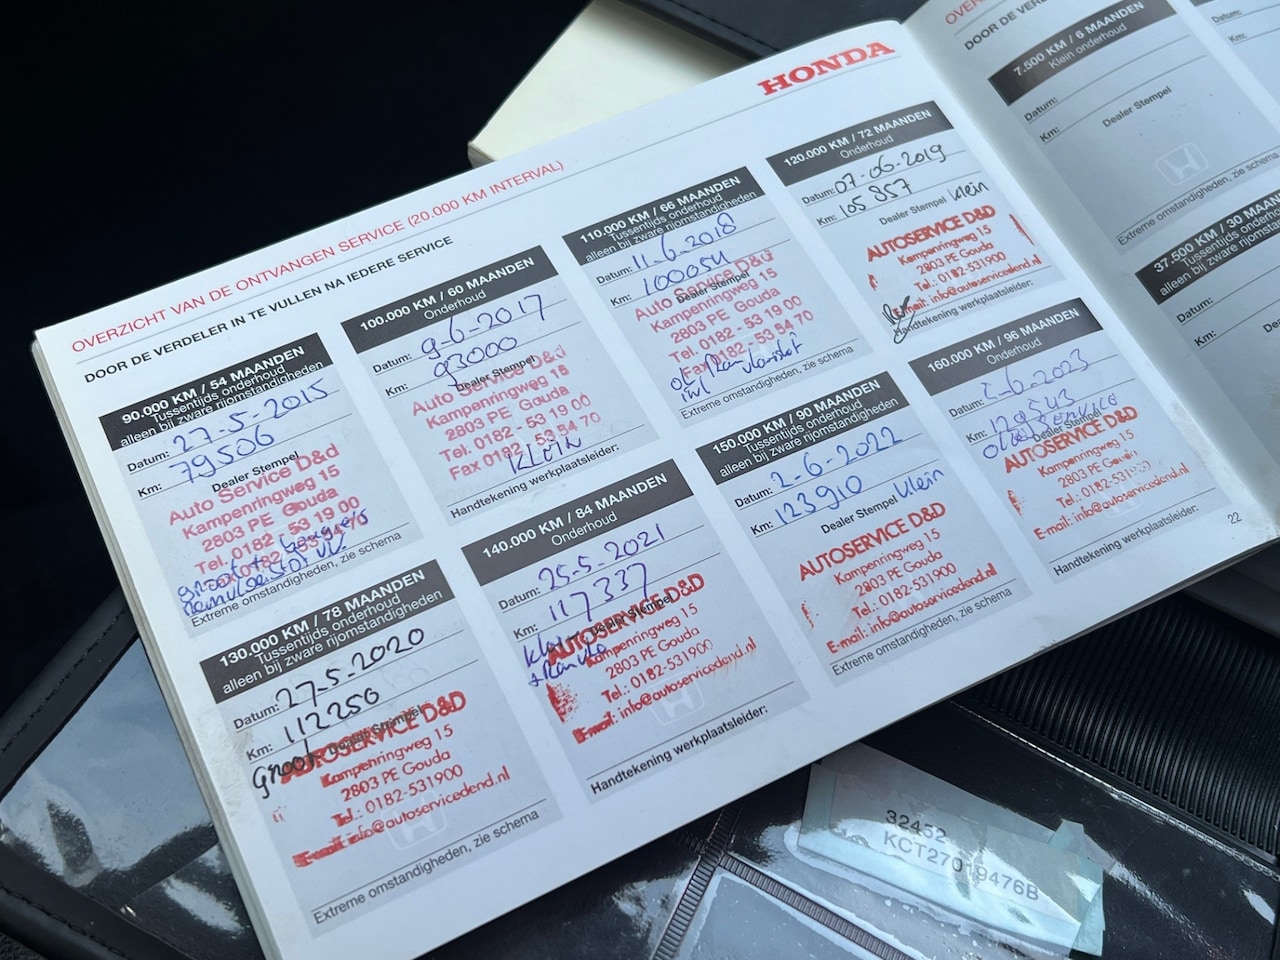 HONDA
OVERZICHT VAN DE ONTVANGEN SERVICE (20.000 KM INTERVAL)
DOOR DE VERDELER IN TE VULLEN NA IEDERE SERVICE
90.000 KM / 54 MAANDEN
Tussentijds onderhoud
alleen bij zware rijomstandigheden
Datum: 27-5-2015
Km: 79506
Dealer Stempel
Auto Service D&d
Kampenringweg 15
2803 PE Gouda
Tel. 0182 - 53 19 00
Extreme omstandigheden, zie schema
100.000 KM / 60 MAANDEN
Onderhoud
Datum: 9-6-2017
Km: 93000
Dealer Stempel
Auto Service D&d
Kampenringweg 15
2803 PE Gouda
Tel. 0182 - 53 19 00
Fax 0182 - 53 54 70
Klein
Handtekening werkplaatsleider:
110.000 KM / 66 MAANDEN
Tussentijds onderhoud
alleen bij zware rijomstandigheden
Datum: 11-6-2018
Km: 100054
Dealer Stempel
Auto Service D&d
Kampenringweg 15
2803 PE Gouda
Tel. 0182 - 53 19 00
Fax 0182 - 53 54 70
Extreme omstandigheden, zie schema
120.000 KM / 72 MAANDEN
Onderhoud
Datum: 07-06-2019
Km: 105 857
Dealer Stempel Klein
AUTOSERVICE D&D
Kampenringweg 15
2803 PE Gouda
Tel.: 0182-531900
E-mail: info@autoservicedend.nl
Handtekening werkplaatsleider:
130.000 KM / 78 MAANDEN
Tussentijds onderhoud
alleen bij zware rijomstandigheden
Datum: 27-5-2020
Km: 112250
Dealer Stempel
Groot
AUTOSERVICE D&D
Kampenringweg 15
2803 PE Gouda
Tel.: 0182-531900
E-mail: info@autoservicedend.nl
Extreme omstandigheden, zie schema
140.000 KM / 84 MAANDEN
Onderhoud
Datum: 25-5-2021
Km: 117337
Dealer Stempel
AUTOSERVICE D&D
Kampenringweg 15
2803 PE Gouda
Tel.: 0182-531900
E-mail: info@autoservicedend.nl
Handtekening werkplaatsleider:
150.000 KM / 90 MAANDEN
Tussentijds onderhoud
alleen bij zware rijomstandigheden
Datum: 2-6-2022
Km: 123910
Dealer Stempel Klein
AUTOSERVICE D&D
Kampenringweg 15
2803 PE Gouda
Tel.: 0182-531900
E-mail: info@autoservicedend.nl
Extreme omstandigheden, zie schema
160.000 KM / 96 MAANDEN
Onderhoud
Datum: 2-6-2023
Km: 129543
Dealer Stempel
AUTOSERVICE D&D
Kampenringweg 15
2803 PE Gouda
Tel.: 0182-531900
E-mail: info@autoservicedend.nl
Handtekening werkplaatsleider:
22
DOOR DE
7.500 KM / 6 MAANDEN
Klein onderhoud
Datum:
Km:
Dealer Stempel
Extreme omstandigheden, zie schema
37.500 KM / 30
Tussentijds
alleen bij zware
Datum:
Km:
Datum:
Km:
32452
KCT270
9476B